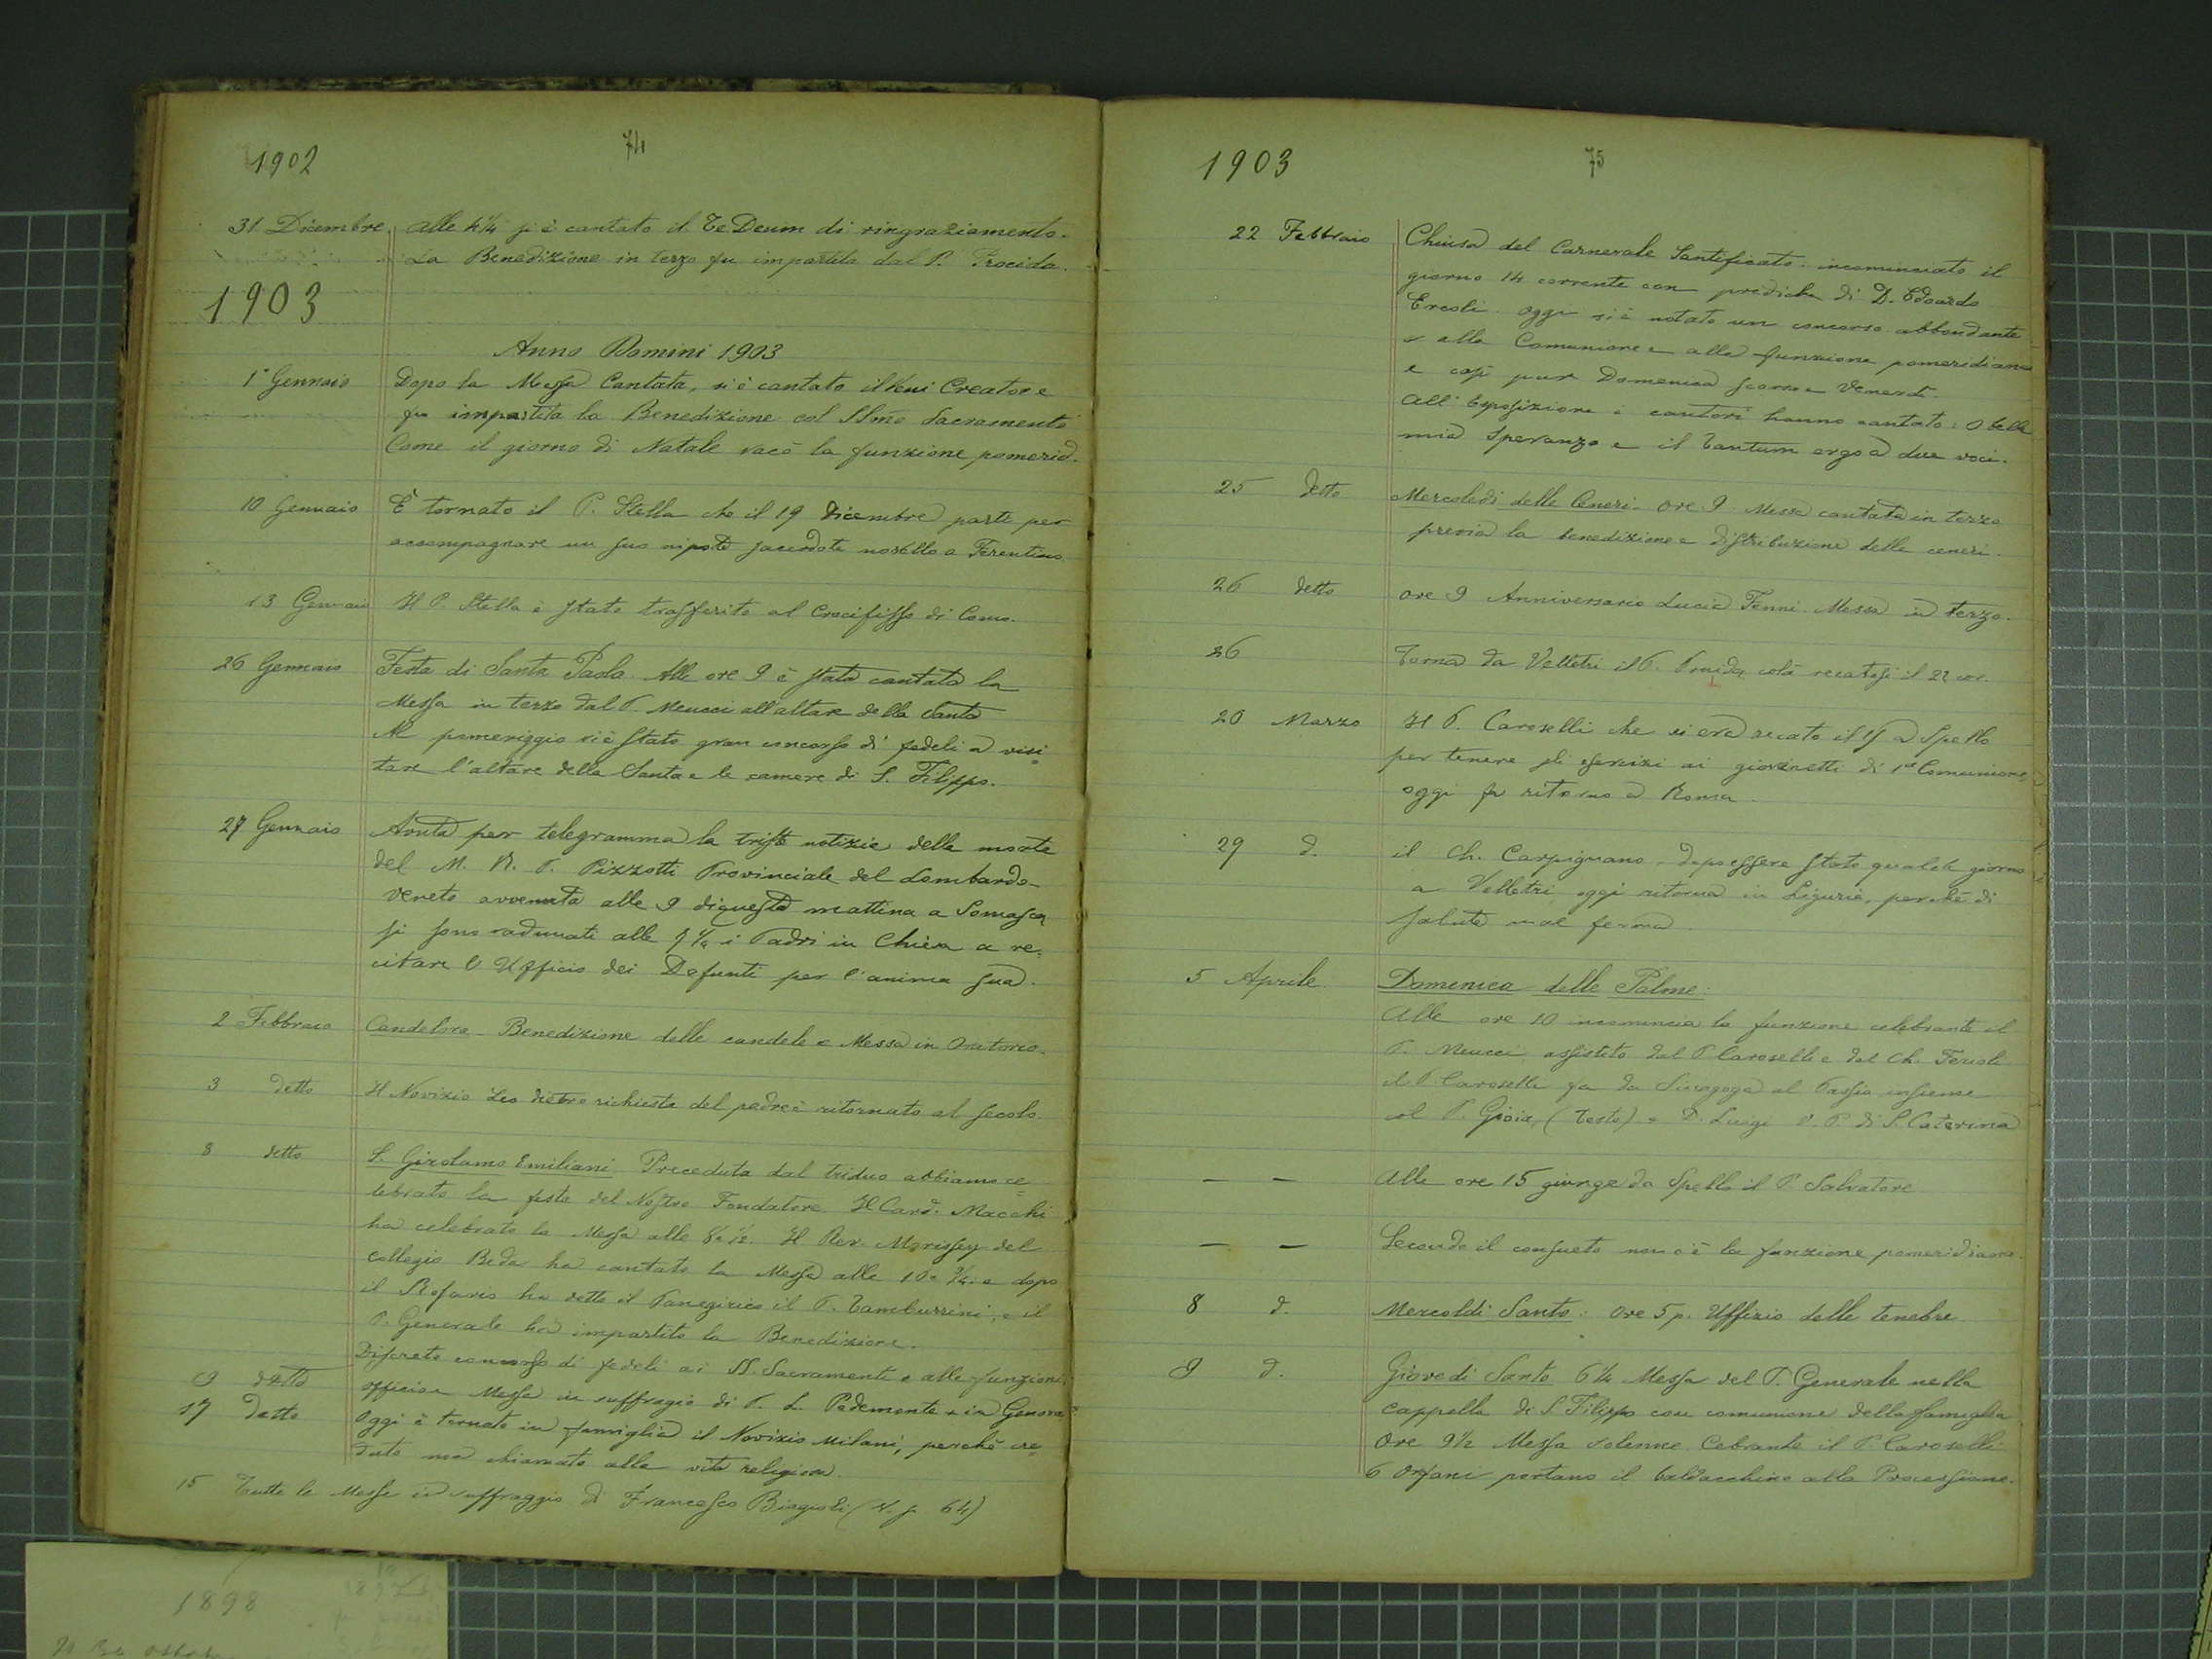 1902
74
31 Dicembre Alle 4¼ si è cantato il Te Deum di ringraziamento.
La Benedizione in terzo fu impartita dal P. Procida.
1903
Anno Domini 1903
1° Gennaio Dopo la Messa Cantata, si è cantato il Veni Creator e
fu impartita la Benedizione col SSmo Sacramento
Come il giorno di Natale vacò la funzione pomerid.
10 Gennaio È tornato il P. Stella che il 19 dicembre partì per
accompagnare un suo nipote sacerdote novello a Ferentino.
13 Gennaio Il P. Stella è stato trasferito al Crocifisso di Como.
26 Gennaio Festa di Santa Paola. Alle ore 9 è stata cantata la
Messa in terzo dal P. Meucci all'altare della Santa
Al pomeriggio vi è stato gran concorso di fedeli a visi=
tare l'altare della Santa e le camere di S. Filippo.
27 Gennaio Avuta per telegramma la triste notizia della morte
del M. R. P. Pizzotti Provinciale del Lombardo-
Veneto avvenuta alle 9 di questa mattina a Somasca
si sono radunati alle i Padri in Chiesa a re=
citare l'Ufficio dei Defunti per l'anima sua.
2 Febbraio Candelora - Benedizione delle candele e Messa in Oratorio.
3 detto Il Novizio Leo dietro richiesta del padre è ritornato al secolo.
8 detto S. Girolamo Emiliani Preceduta dal triduo abbiamo ce=
lebrato la festa del Nostro Fondatore. Il Card. Macchi
ha celebrato la Messa alle 8 e ½. Il Rev. Morissey del
Collegio Beda ha cantato la Messa alle 10 e ¾. e dopo
il Rosario ha detto il Panegirico il P. Tamburrini, e il
P. Generale ha impartito la Benedizione.
Discreto concorso di fedeli ai SS. Sacramenti e alle funzioni.
9 detto Officio e Messa in suffragio di P. L. Pedemonte + in Genova
17 Detto Oggi è tornato in famiglia il Novizio Milani, perchè cre=
duto non chiamato alla vita religiosa.
15 Tutte le Messe in suffraggio di Francesco Biagioli (V. p. 64)
1903
75
22 Febbraio Chiusa del Carnevale Santificato. incominciato il
giorno 14 corrente con prediche di D. Edoardo
Ercoli. oggi si è notato un concorso abbondante
e alla Comunione e alla funzione pomeridiana
e così pur Domenica scorsa e Venerdì.
All'Esposizione i cantori hanno cantato: O bella
mia Speranza e il Tantum ergo a due voci.
25 detto Mercoledì delle Ceneri. ore 9 Messa cantata in terzo
previa la benedizione e distribuzione delle ceneri.
26 detto ore 9 Anniversario Lucia Fenni. Messa in terzo.
26 Torna da Velletri il P. Procida colà recatosi il 22 cor.
20 Marzo Il P. Caroselli che si era recato il a Spello
per tenere gli esercizi ai giovanetti di 1ª Comunione
oggi fa ritorno a Roma.
29 d. il Ch. Carpignano, dopo essere stato qualche giorno
a Velletri, oggi ritorna in Liguria, perchè di
salute mal ferma.
5 Aprile. Domenica delle Palme:
Alle ore 10 incomincia la funzione celebrante il
P. Meucci, assistito dal P. Caroselli e dal Ch. Ferioli
il P. Caroselli fa da Sinagoga al Passio insieme
col P. Gioia, (Testo) e D. Luigi V. P. di S. Caterina
— — Alle ore 15 giunge da Spello il P. Salvatore
— — Secondo il consueto non c'è la funzione pomeridiana.
8 d. Mercoldì Santo: Ore 5 p. Uffizio delle tenebre
9 d. Giovedì Santo 6¼ Messa del P. Generale nella
Cappella di S. Filippo con comunione della famiglia
Ore 9½ Messa solenne Cebrante il P. Caroselli.
6 Orfani portano il baldacchino alla Processione.
1898